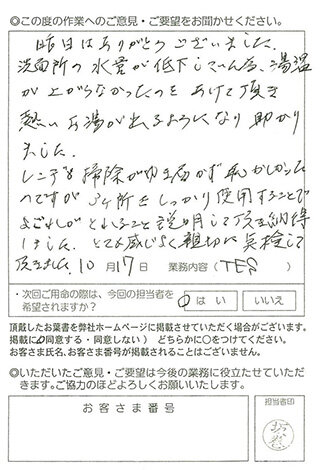 ◎この度の作業へのご意見・ご要望をお聞かせください。
昨日はありがとうございました。
洗面所の水量が低下していた為、湯温
が上がらなかったのをあげて頂き
熱いお湯が出るようになり助かり
ました。
レンジも掃除が行き届かず恥かしかった
のですが 3ヶ所をしっかり使用することで
よごれがとれること説明して頂き納得
しました。とても感じよく親切に点検して
頂きました
10月17日 業務内容(TES)
・次回ご用命の際は、今回の担当者を
希望されますか?
はい いいえ
頂戴したお葉書を弊社ホームページに掲載させていただく場合がございます。
掲載に(同意する・同意しない) どちらかに○をつけてください。
お客さま氏名、お客さま番号が掲載されることはございません。
◎いただいたご意見・ご要望は今後の業務に役立たせていただ
きます。ご協力のほどよろしくお願いいたします。
お客さま番号
担当者印